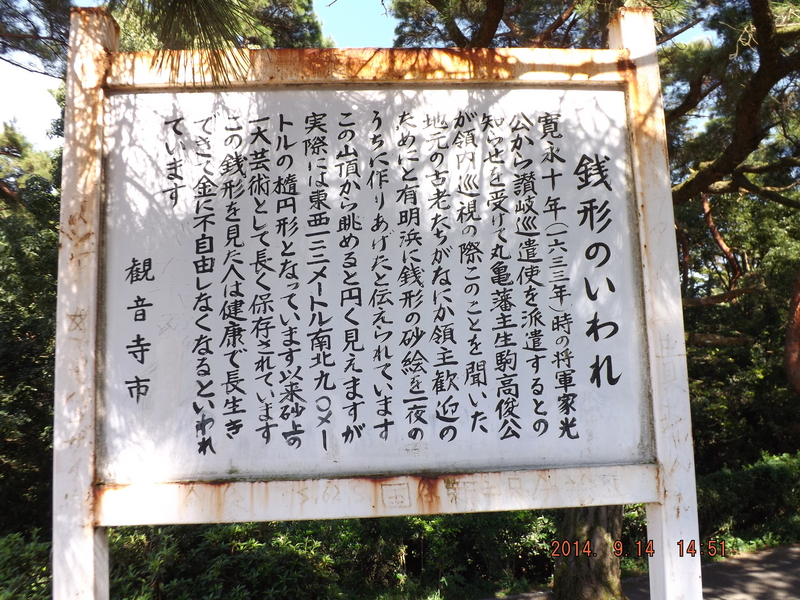 銭形のいわれ
寛永十年(一六三三年)時の将軍家光
公から讃岐巡遣使を派遣するとの
知らせを受けて丸亀藩主生駒高俊公
が領内巡視の際このことを聞いた
地元の古老たちがなにか領主歓迎の
ためにと有明浜に銭形の砂絵を一夜の
うちに作りあげたと伝えられています
この山頂から眺めると円く見えますが
実際には東西一二二メートル南北九〇メー
トルの楕円形となっています以来砂上の
一大芸術として長く保存されています
この銭形を見た人は健康で長生き
できて金に不自由しなくなるといわれ
ています
観音寺市
2014. 9.14 14:51